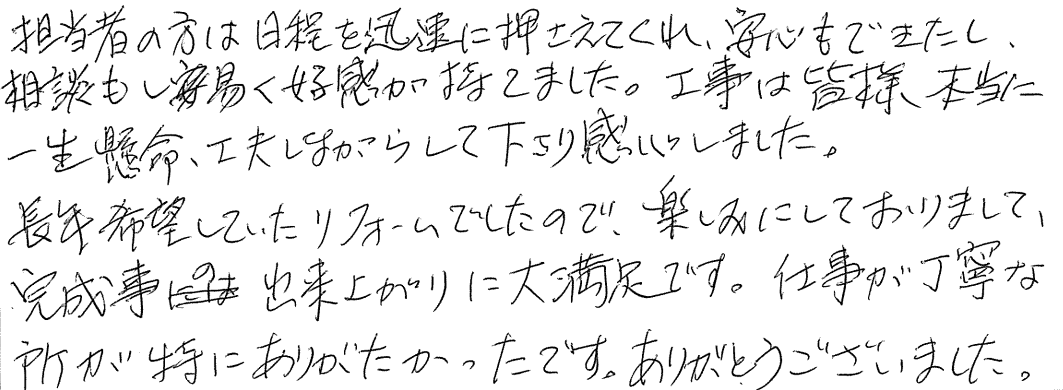 担当者の方は日程を迅速に押さえてくれ、安心もできたし、
相談もし易く好感が持てました。工事は皆様、本当に
一生懸命、工夫しながらして下さり感心しました。
長年希望していたリフォームでしたので、楽しみにしておりまして、
完成事の出来上がりに大満足です。仕事が丁寧な
所が特にありがたかったです。ありがとうございました。